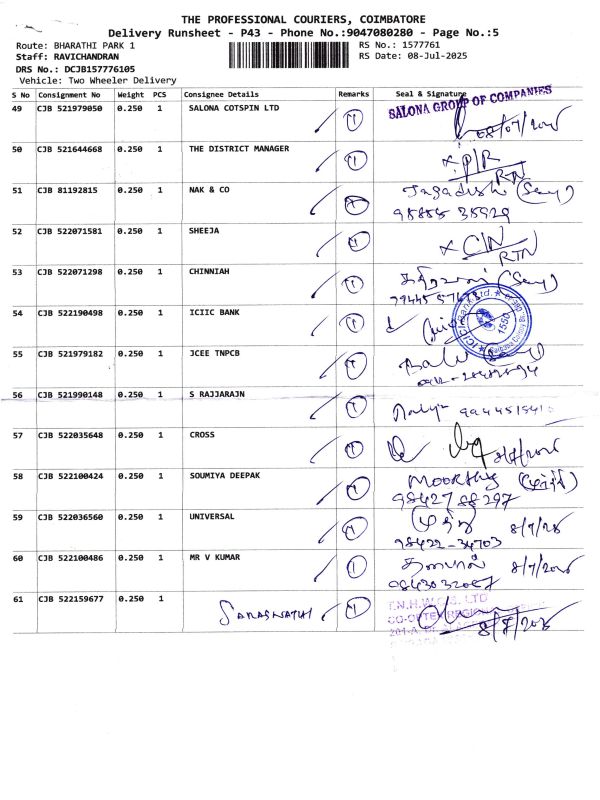 THE PROFESSIONAL COURIERS, COIMBATORE
Delivery Runsheet - P43 - Phone No.:9047080280 - Page No.:5
Route: BHARATHI PARK 1 RS No.: 1577761
Staff: RAVICHANDRAN RS Date: 08-Jul-2025
DRS No.: DCJB157776105
Vehicle: Two Wheeler Delivery
S No Consignment No Weight PCS Consignee Details Remarks Seal & Signature
49 CJB 521979050 0.250 1 SALONA COTSPIN LTD 1 SALONA GROUP OF COMPANIES
08/07/2025
50 CJB 521644668 0.250 1 THE DISTRICT MANAGER 1 x P/R
RTN
51 CJB 81192815 0.250 1 NAK & CO 1 Jagadish
52 CJB 522071581 0.250 1 SHEEJA 1 x C/N
RTN
53 CJB 522071298 0.250 1 CHINNIAH 1
54 CJB 522190498 0.250 1 ICIIC BANK 1 ICICI Bank Ltd. 1550
55 CJB 521979182 0.250 1 JCEE TNPCB 1
56 CJB 521990148 0.250 1 S RAJJARAJN 1
57 CJB 522035648 0.250 1 CROSS 1
58 CJB 522100424 0.250 1 SOUMIYA DEEPAK 1 Moorthy
98427 88297
59 CJB 522036560 0.250 1 UNIVERSAL 1 8/7/25
98422-34703
60 CJB 522100486 0.250 1 MR V KUMAR 1 8/7/2025
9843032067
61 CJB 522159677 0.250 1 SARASWATHI 1 T.N.H.W.C.S. LTD
CO-OPTEX REGION
8/7/2025